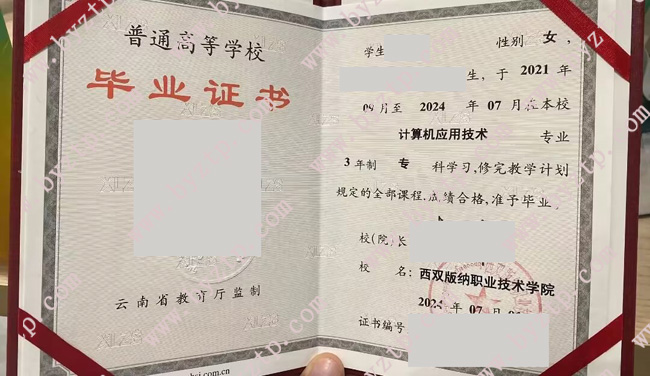 普通高等学校
毕业证书
云南省教育厅监制
学生
性别 女,
生, 于 2021 年
09 月至 2024 年 07 月在本校
计算机应用技术 专业
3 年制 专 科学习, 修完教学计划
规定的全部课程, 成绩合格, 准予毕业。
校(院)长
校 名: 西双版纳职业技术学院
2024 年 07 月
证书编号